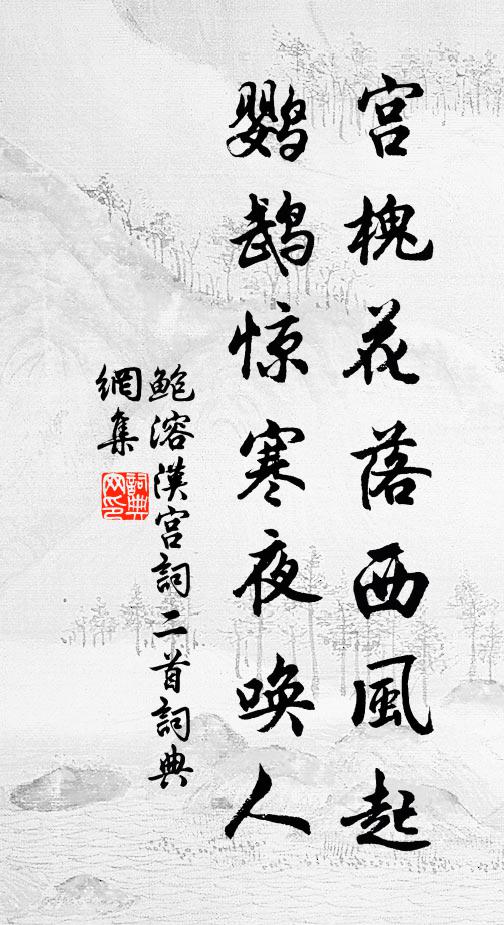 宫槐花落西風起
鹦鹉惊寒夜唤人
鲍溶漢宫詞二首詞典
網集
詞典
网印